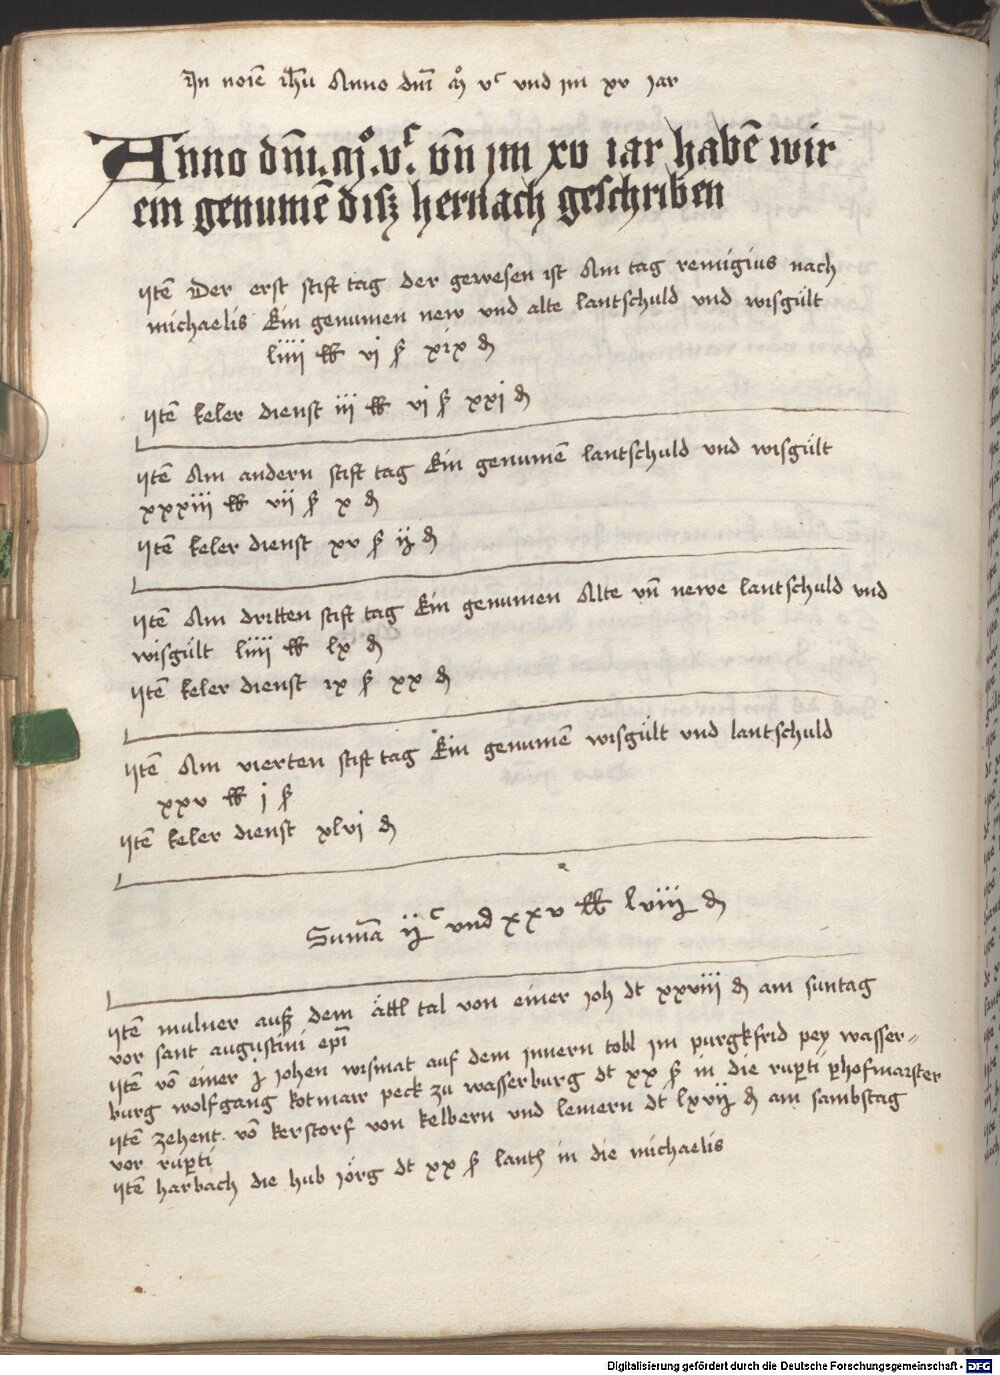 In noĩe ihũ Anno dm̃ mͦ vᶜ vnd im xv iar
Anno dm̃. mͦ. vᶜ. vñ im xv iar habẽ wir
ein genumẽ disz hernach geschriben
Itẽ Der erst stift tag der gewesen ist Am tag remigius nach
michaelis Ein genumen new vnd alte lantschuld vnd wisgült
liiii ℔ vj ß xix ₰
Itẽ keler dienst iii ℔ vj ß xxj ₰
Itẽ Am andern stift tag Ein genumẽ lantschuld vnd wisgült
xxxiii ℔ vii ß x ₰
Itẽ keler dienst xv ß ij ₰
Itẽ Am dritten stift tag Ein genumen Alte vñ newe lantschuld vnd
wisgült liiii ℔ lx ₰
Itẽ keler dienst ix ß xx ₰
Itẽ Am vierten stift tag Ein genumẽ wisgült vnd lantschuld
xxv ℔ j ß
Itẽ keler dienst xlvj ₰
Sum̃a ijᶜ vnd xxv ℔ lviij ₰
Itẽ mulner auß dem ättl tal von einer joh dt xxviii ₰ am suntag
vor sant augustini ep̃i
Itẽ võ einer j johen wismat auf dem innern tobl im purgkfrid pey wasser=
burg wolfgang kotmair peck zu wasserburg dt xx ß in die rup̱ti p̱ hofmaister
Itẽ zehent võ kerstorf von kelbern vnd lemern dt lxvij ₰ am sambstag
vor rup̱ti
Itẽ harbach die hub jörg dt xx ß lanth in die michaelis
Digitalisierung gefördert durch die Deutsche Forschungsgemeinschaft - DFG